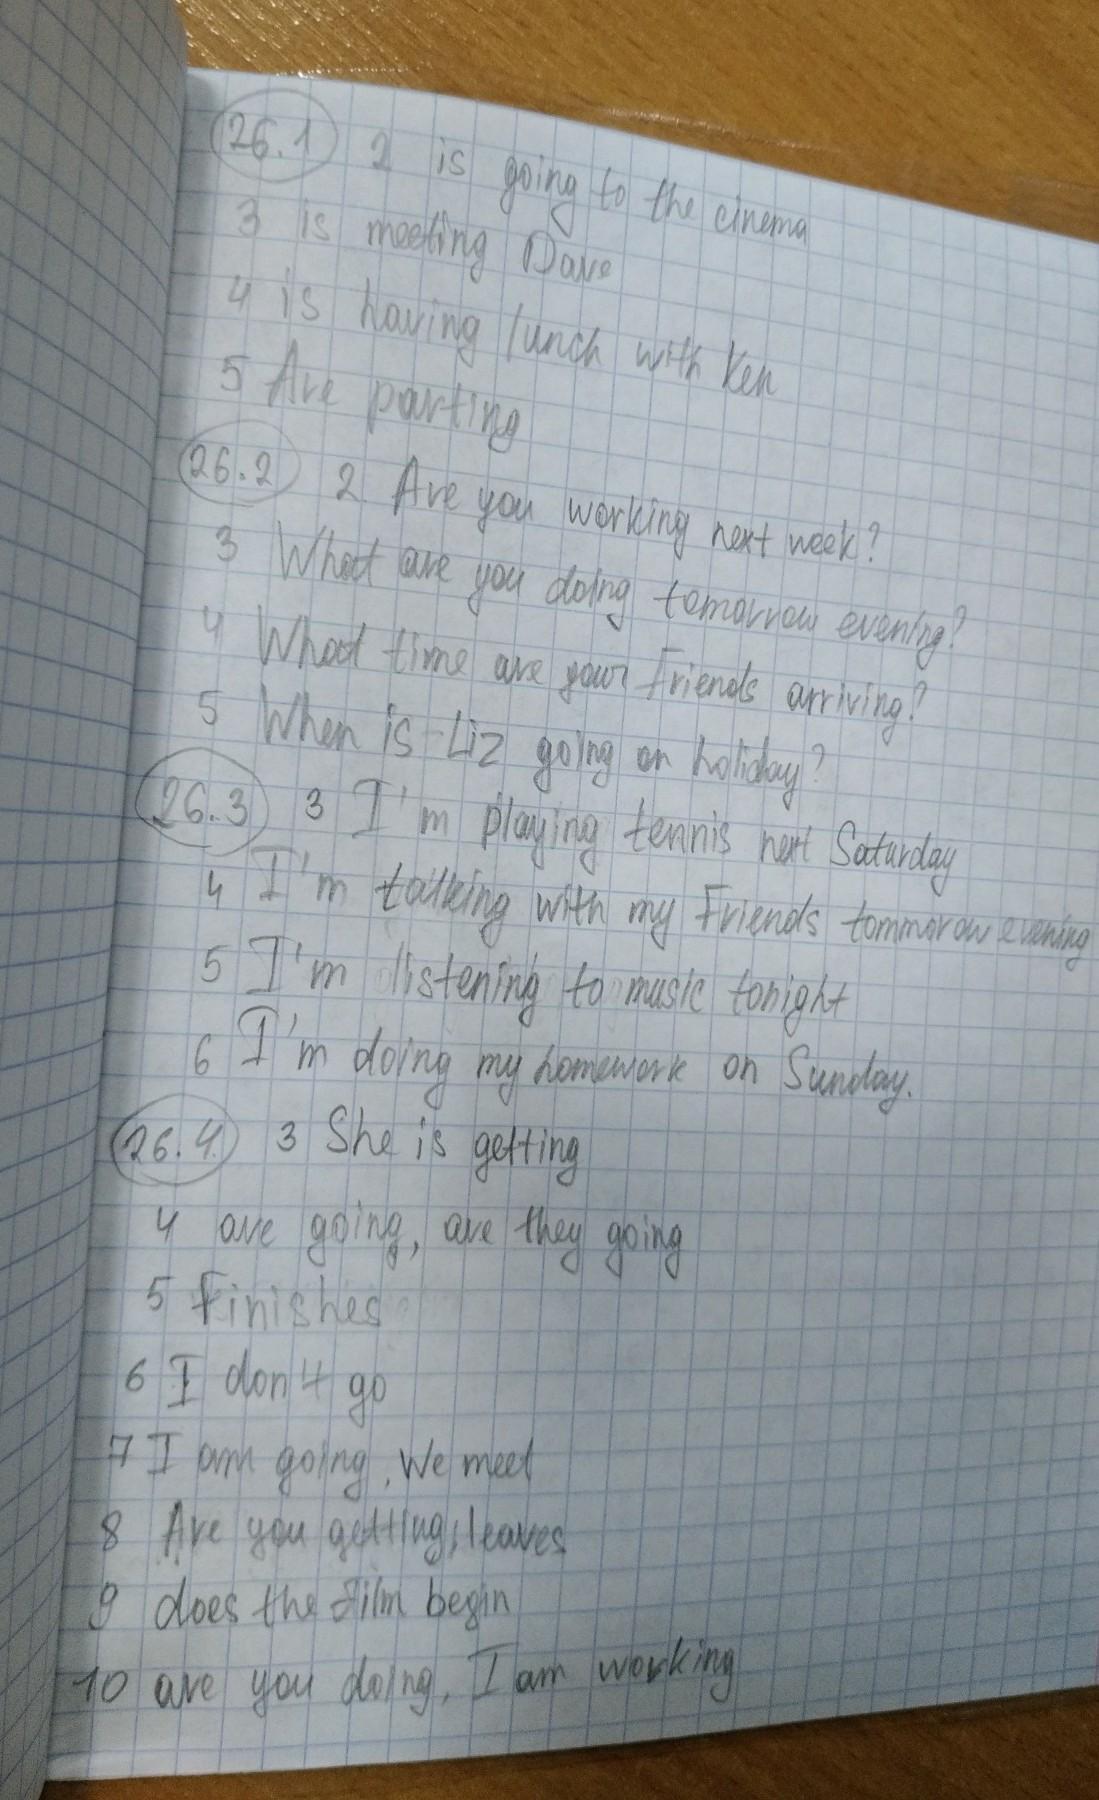 26.1 2 is going to the cinema
3 is meeting Dave
4 is having lunch with Ken
5 Are parting
26.2 2 Are you working next week?
3 What are you doing tomorrow evening?
4 What time are your Friends arriving?
5 When is Liz going on holiday?
26.3 3 I'm playing tennis next Saturday
4 I'm talking with my Friends tommorow evening
5 I'm listening to music tonight
6 I'm doing my homework on Sunday.
26.4. 3 She is getting
4 are going, are they going
5 Finishes
6 I don't go
7 I am going, We meet
8 Are you getting, leaves
9 does the Film begin
10 are you doing, I am working